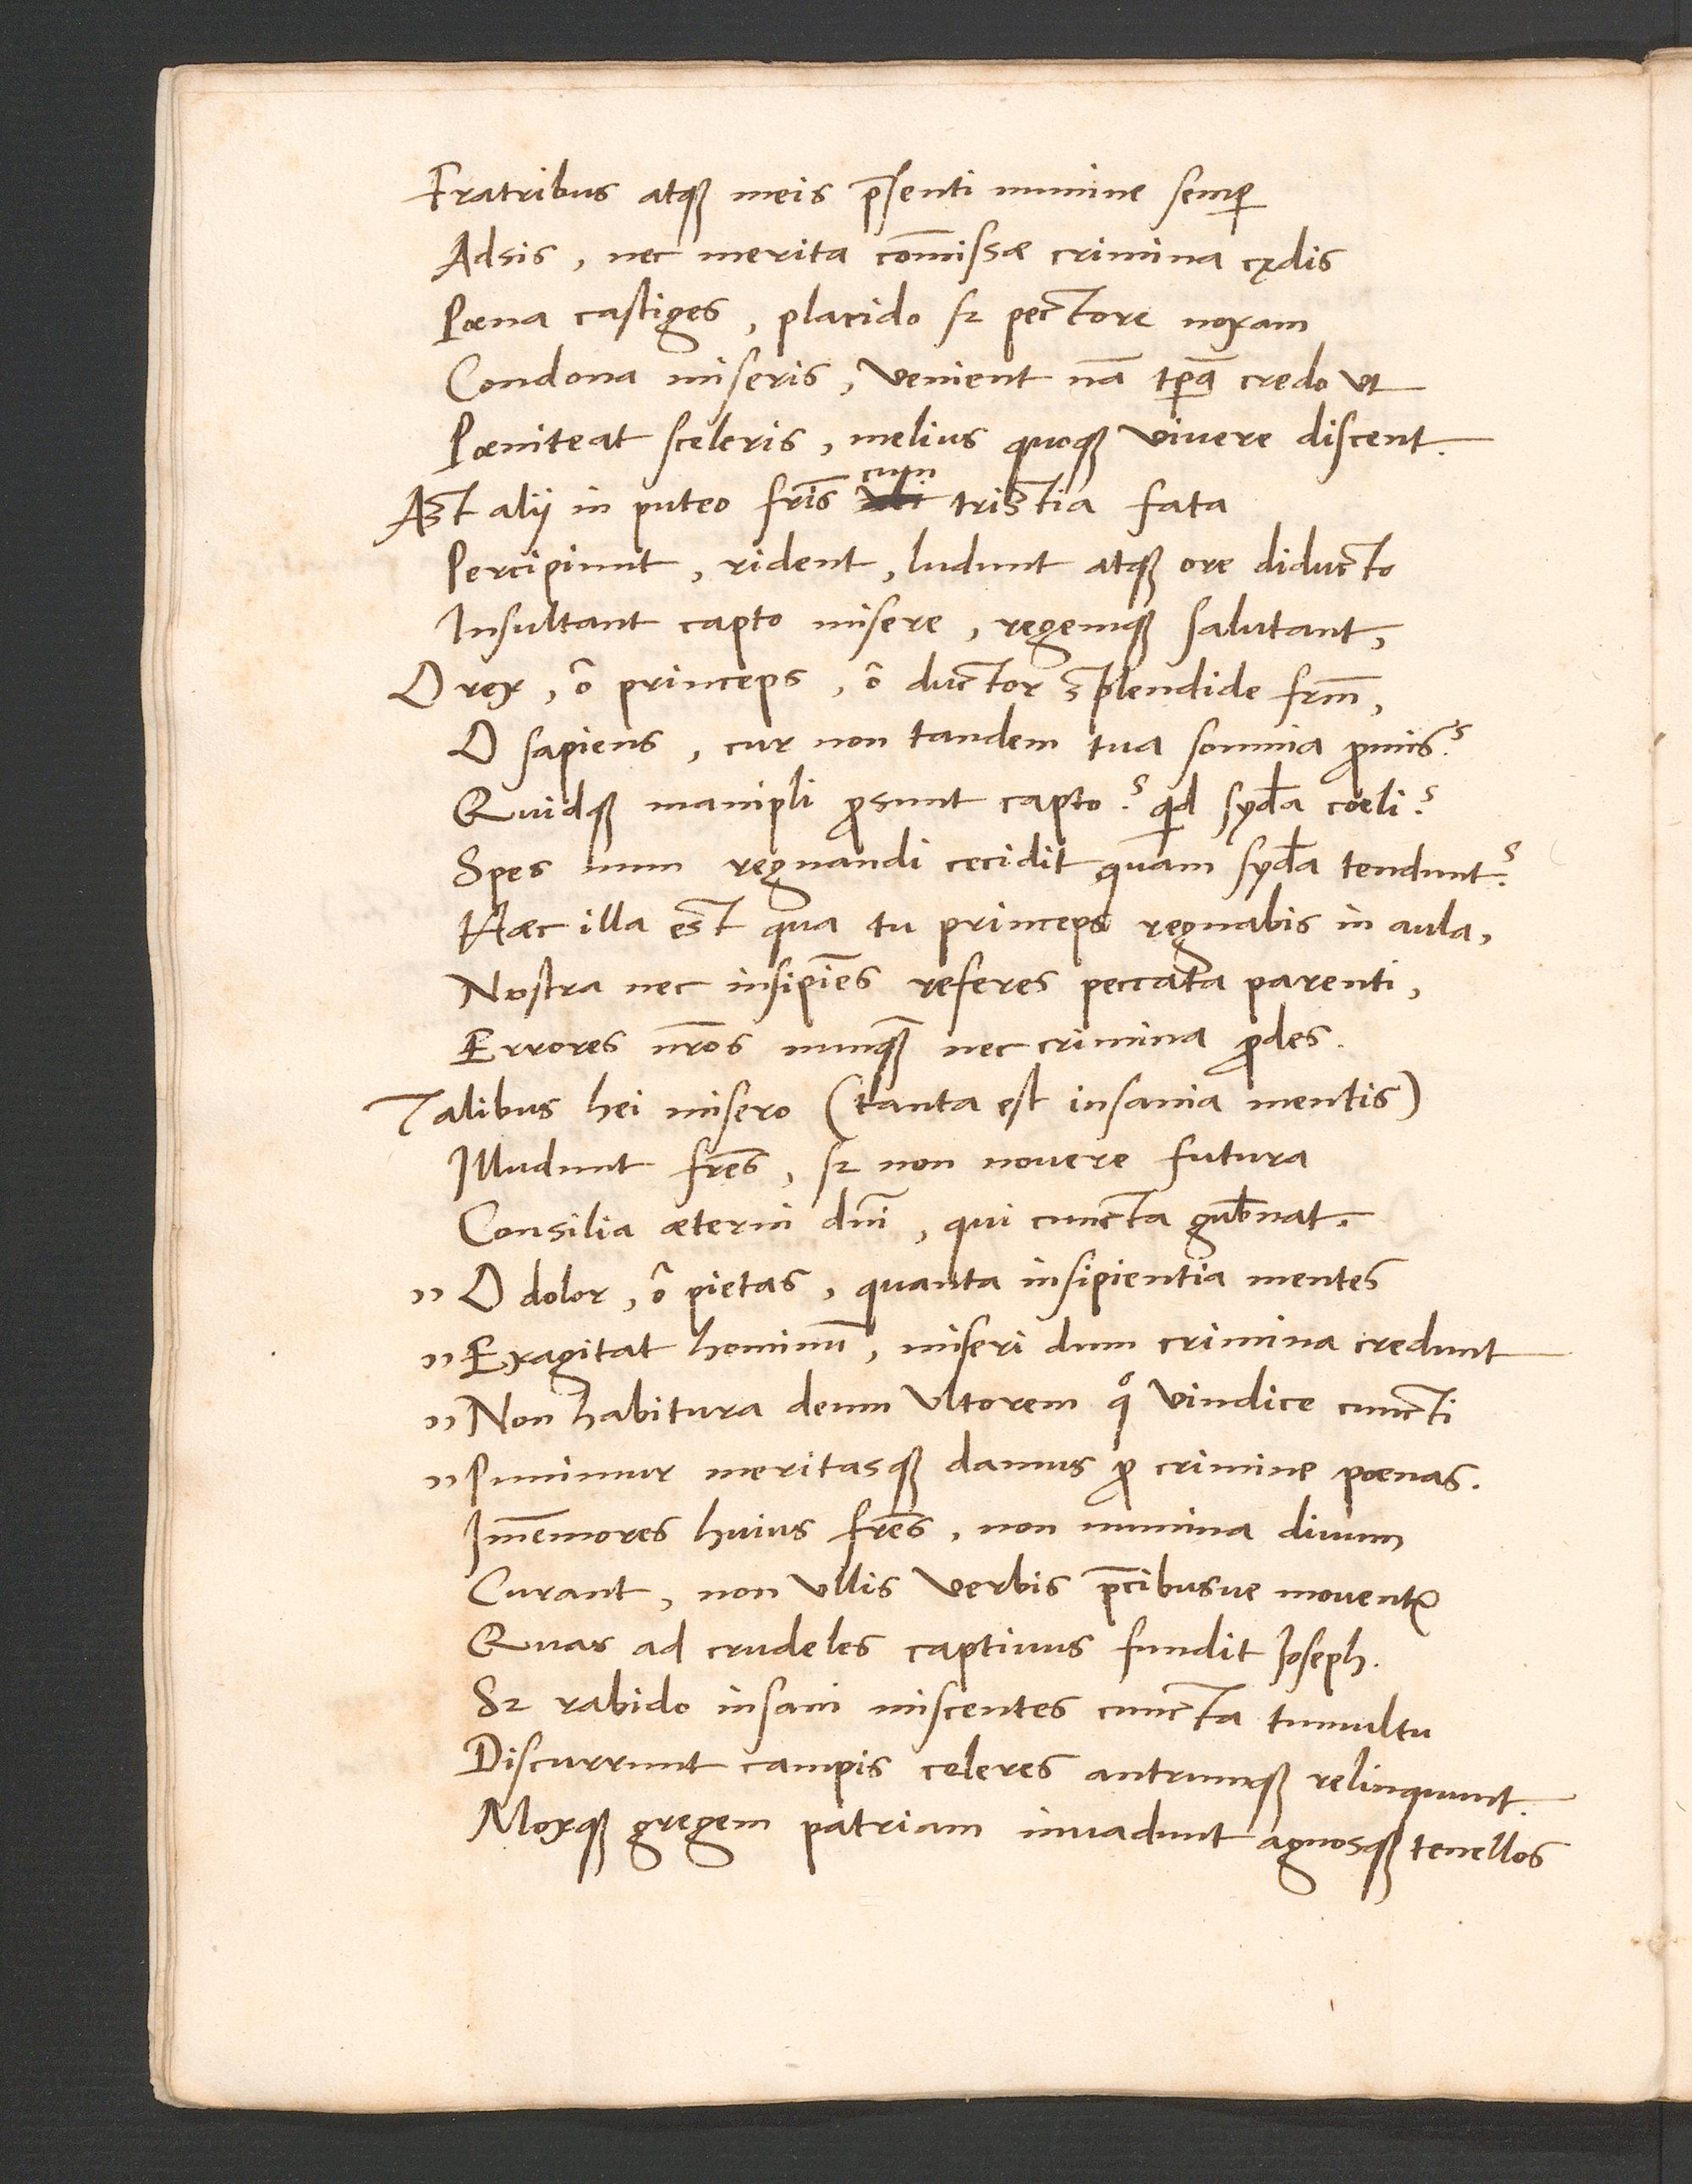 Fratribus atqȝ meis p̄senti numine semp̱
Adsis, nec merita com̄issæ crimina cędis
Pœna castiges, placido sꝫ pectore noxam
Condona miseris, venient nā tp̄a credo vt
Pœniteat sceleris, melius quoqȝ viuere discent.
Ast alij in puteo fr̄is cum tristia fata
Percipiunt, rident, ludunt atqȝ ore diducto
Insultant capto misere, regemqȝ salutant,
O rex, ô princeps, ô ductor splendide fr̄m,
O sapiens, cur non tandem tua somnia ꝓmis?
Quidqȝ manipli ꝓsunt capto? qd syd̄a coeli?
Spes num regnandi cecidit quam syd̄a tendunt?
Hæc illa est qua tu princeps regnabis in aula,
Nostra nec insipiēs referes peccata parenti,
Errores nr̄os nunqȝ̄ nec crimina ꝓdes.
Talibus hei misero (tanta est insania mentis)
Illudunt fr̄es, sꝫ non nouere futura
Consilia æterni dn̄i, qui cuncta gub̄nat.
„ O dolor, ô pietas, quanta insipientia mentes
„ Exagitat hominū, miseri dum crimina credunt
„ Non habitura deum vltorem qͦ vindice cuncti
„ Punimur meritasqȝ damus ꝓ crimine pœnas.
Im̄emores huius fr̄es, non numina diuum
Curant, non vllis verbis p̄cibusue mouentᷣ
Quas ad crudeles captiuus fundit Joseph.
Sꝫ rabido insani miscentes cuncta tumultu
Discurrunt campis celeres antrumqȝ relinquunt.
Moxqȝ gregem patriam inuadunt agnosqȝ tenellos